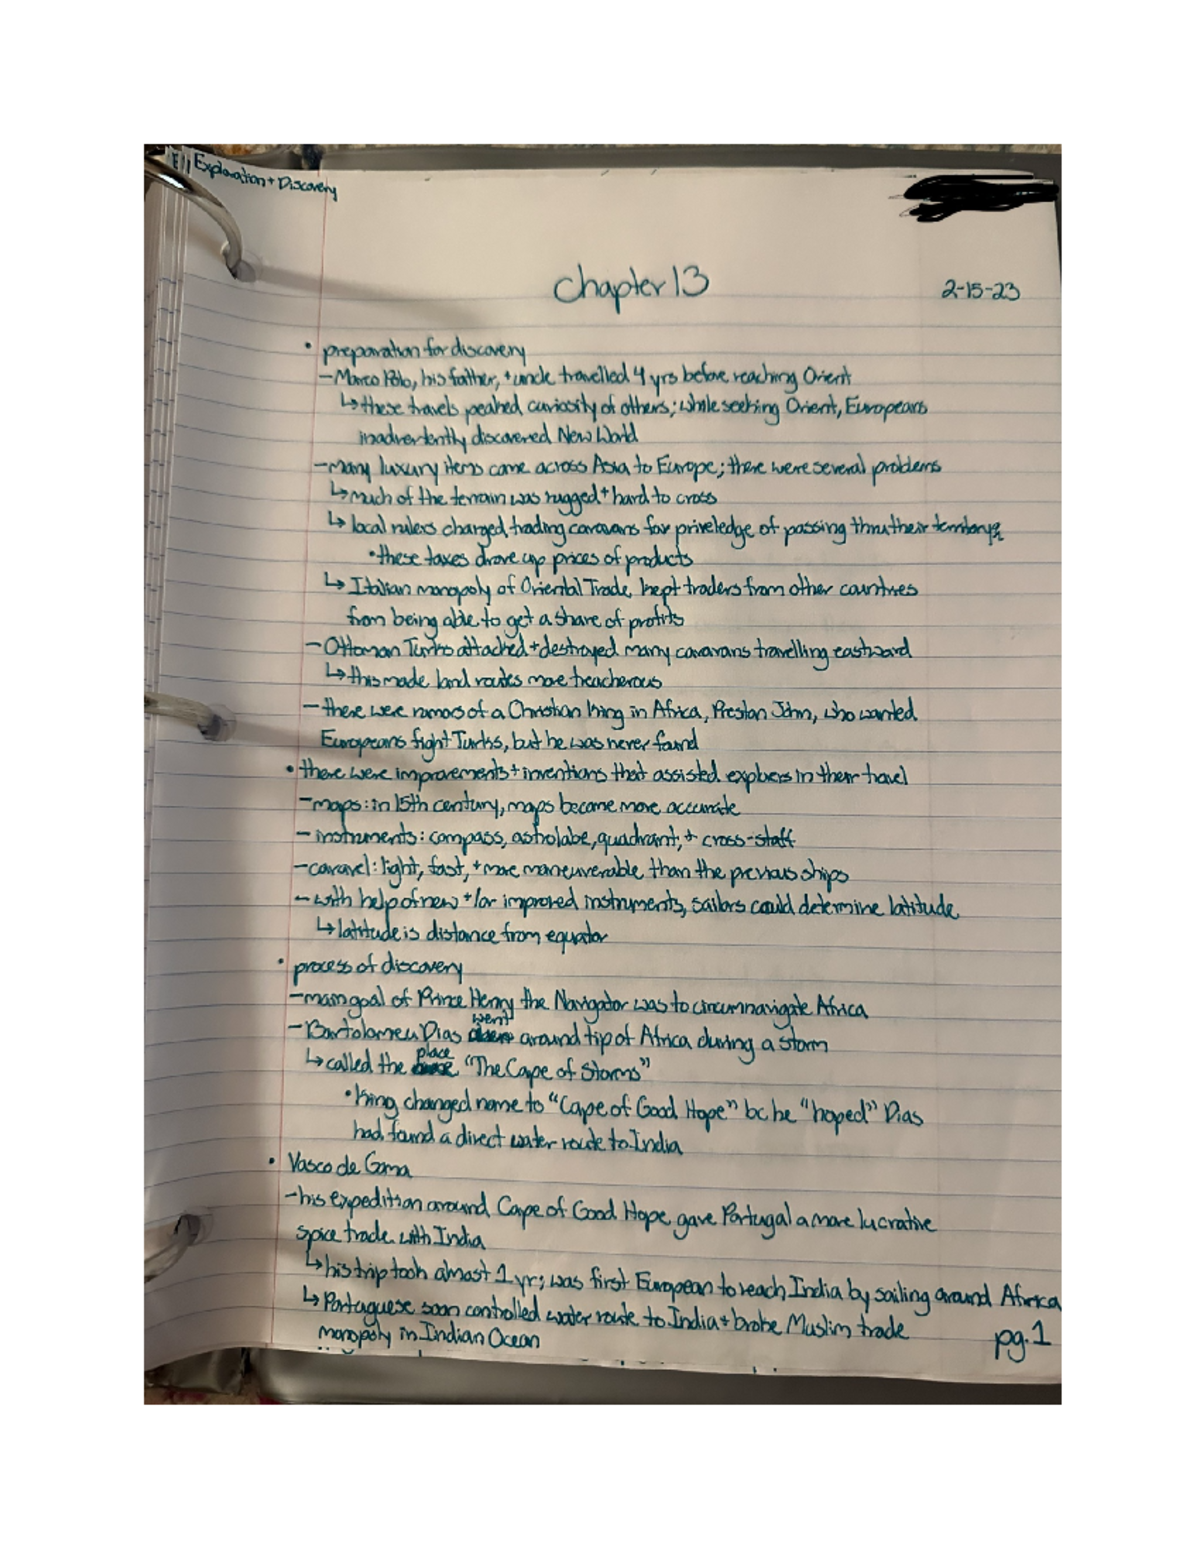 Exploration + Discovery
Chapter 13
2-15-23
• preparation for discovery
- Marco Polo, his father, + uncle travelled 4 yrs before reaching Orient
↳ these travels peaked curiosity of others; while seeking Orient, Europeans
inadvertently discovered New World
- Many luxury items came across Asia to Europe; there were several problems
↳ much of the terrain was rugged + hard to cross
↳ local rulers charged trading caravans for priveledge of passing thru their territory
• these taxes drove up prices of products
↳ Italian monopoly of Oriental Trade kept traders from other countries
from being able to get a share of profits
- Ottoman Turks attacked + destroyed many caravans travelling eastward
↳ this made land routes more treacherous
- there were rumors of a Christian king in Africa, Prestan John, who wanted
Europeans fight Turks, but he was never found
• there were improvements + inventions that assisted explorers in their travel
- maps: in 15th century, maps became more accurate
- instruments: compass, astrolabe, quadrant, + cross-staff
- caravel: light, fast, + more maneuverable than the previous ships
- with help of new +/or improved instruments, sailors could determine latitude
↳ latitude is distance from equator
• process of discovery
- main goal of Prince Henry the Navigator was to circumnavigate Africa
- Bartolomeu Dias went around tip of Africa during a storm
↳ called the place "The Cape of Storms"
• king changed name to "Cape of Good Hope" bc he "hoped" Dias
had found a direct water route to India
• Vasco de Gama
- his expedition around Cape of Good Hope gave Portugal a more lucrative
spice trade with India
↳ his trip took almost 1 yr; was first European to reach India by sailing around Africa
↳ Portuguese soon controlled water route to India + broke Muslim trade
monopoly in Indian Ocean
pg. 1